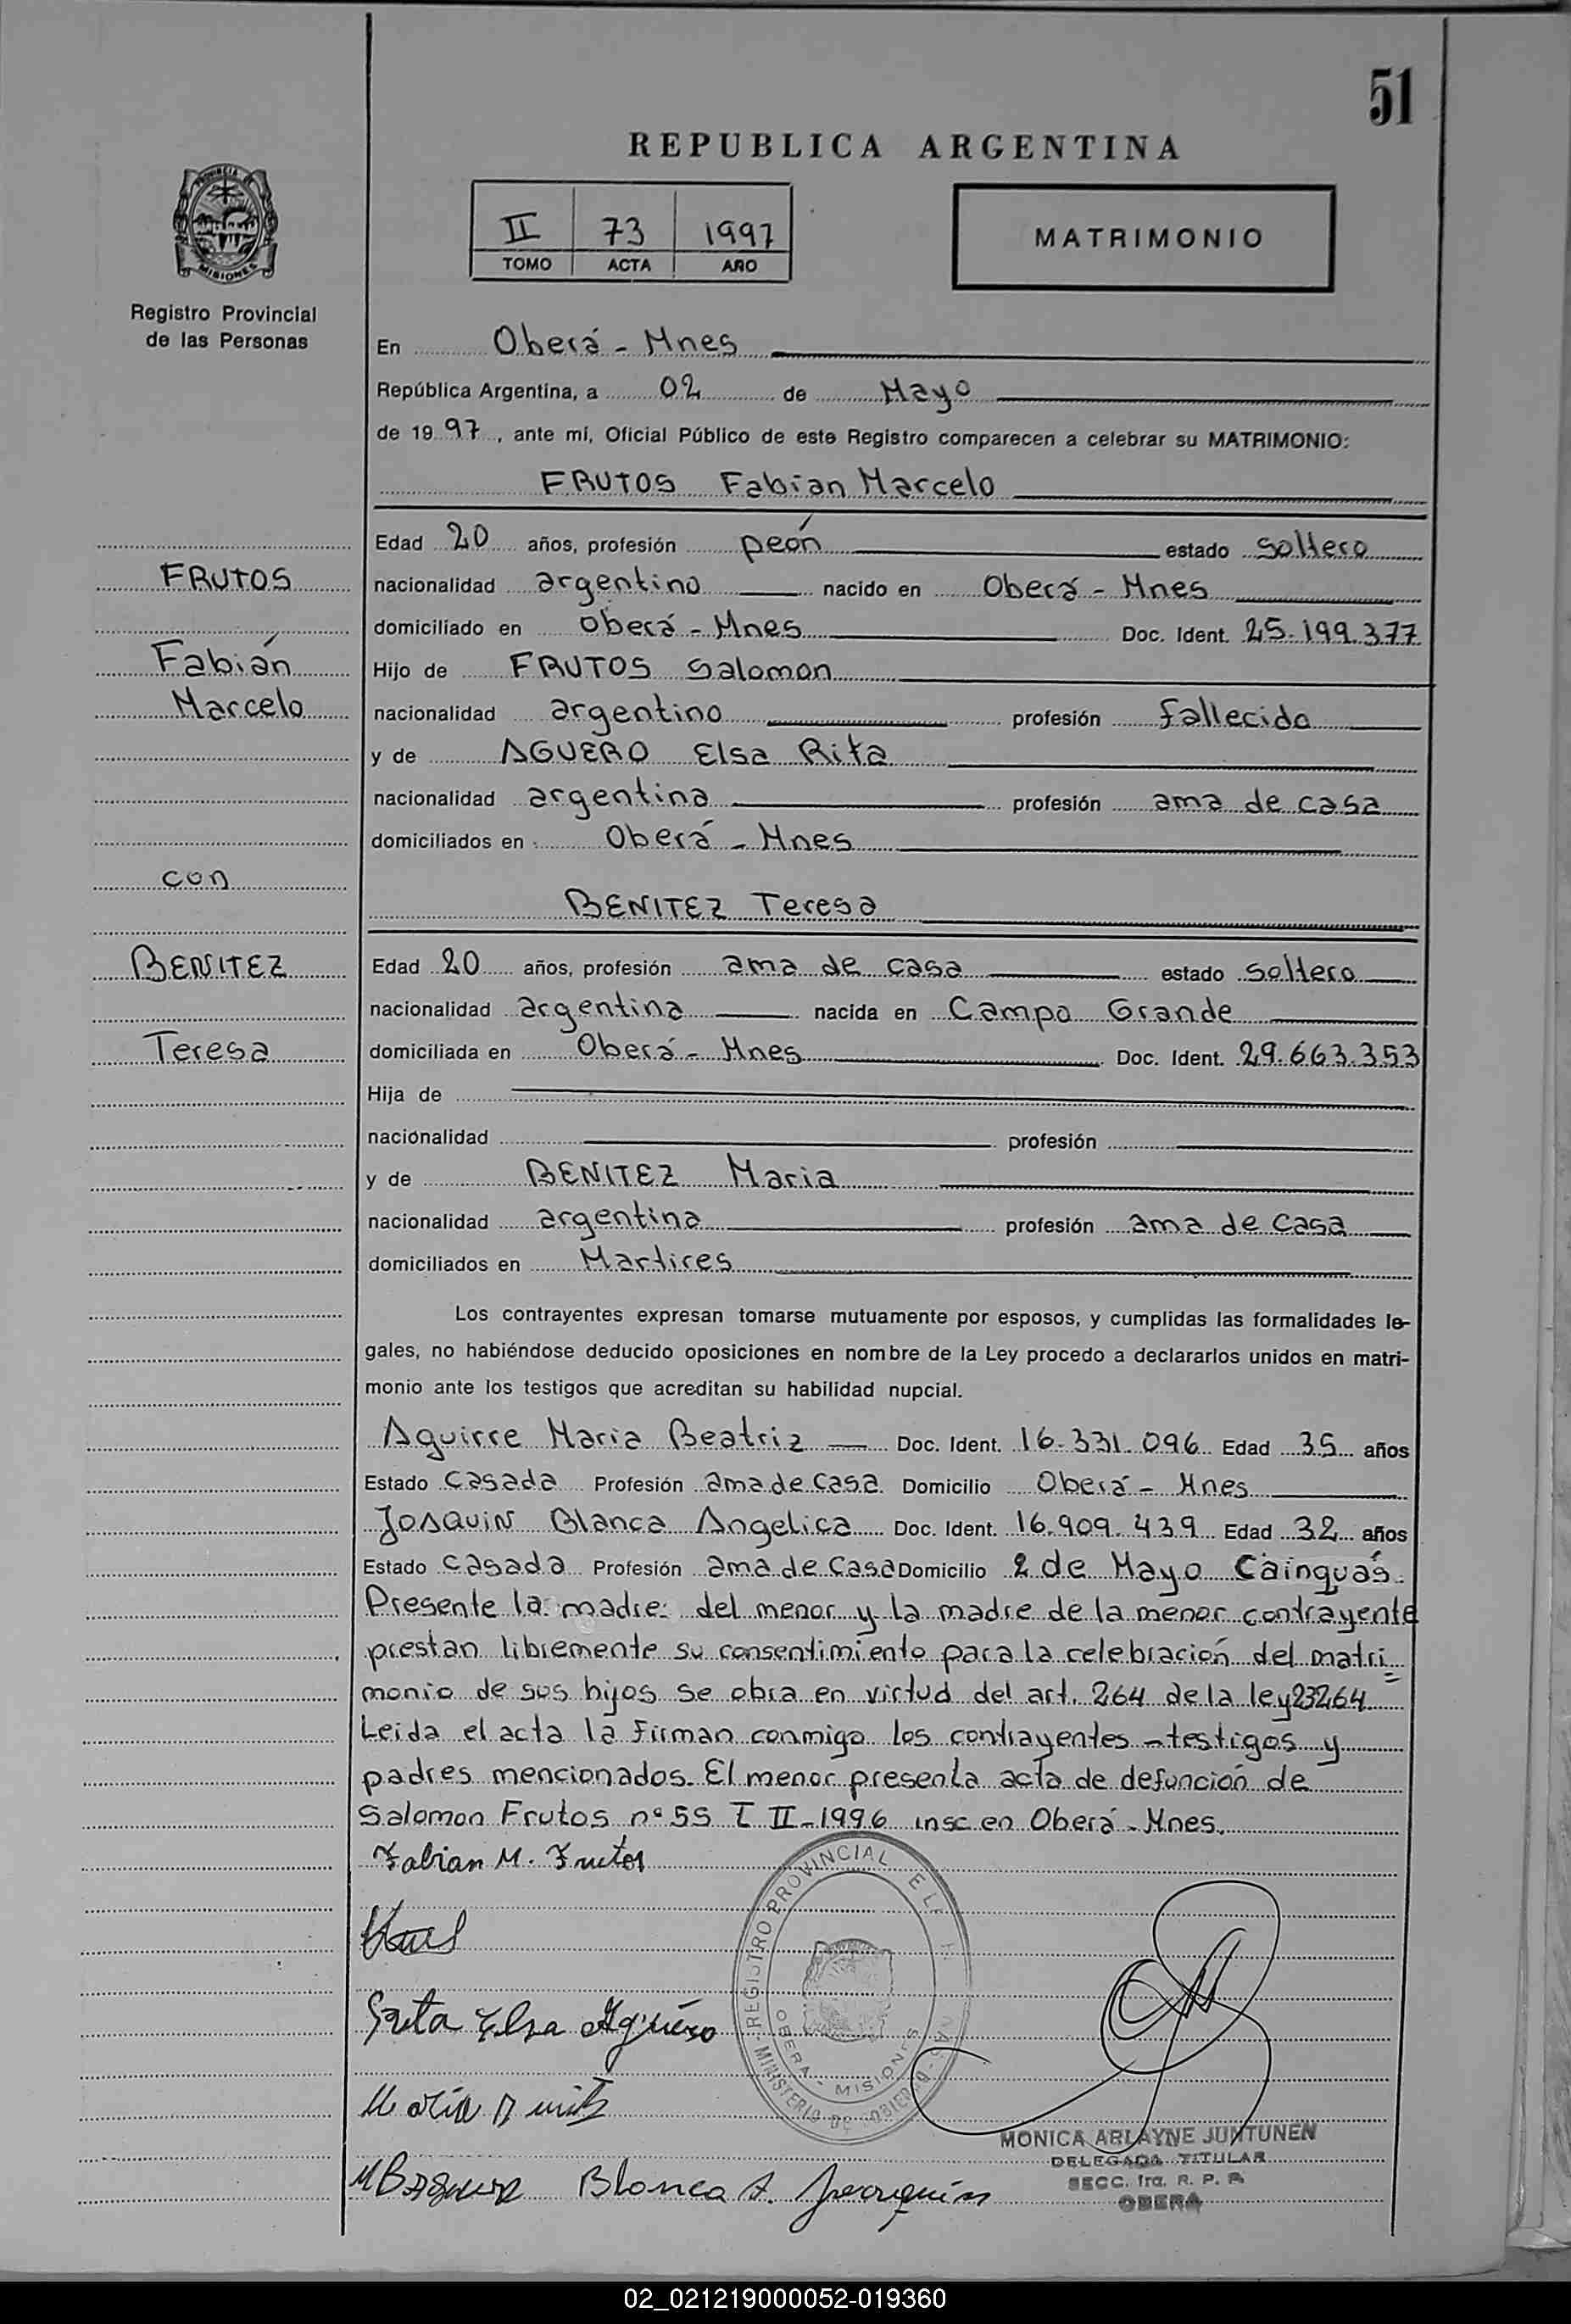 51
REPUBLICA ARGENTINA
PROVINCIA DE
MISIONES
Registro Provincial
de las Personas
II 73 1997
TOMO ACTA AÑO
MATRIMONIO
En Oberá - Mnes
República Argentina, a 02 de Mayo
de 1997, ante mí, Oficial Público de este Registro comparecen a celebrar su MATRIMONIO:
FRUTOS Fabian Marcelo
Edad 20 años, profesión peón estado soltero
FRUTOS
nacionalidad argentino nacido en Oberá - Mnes
domiciliado en Oberá - Mnes Doc. Ident. 25.199.377
Fabián
Hijo de FRUTOS Salomon
Marcelo
nacionalidad argentino profesión fallecido
y de AGUERO Elsa Rita
nacionalidad argentina profesión ama de casa
domiciliados en Oberá - Mnes
con
BENITEZ Teresa
BENITEZ
Edad 20 años, profesión ama de casa estado soltera
nacionalidad argentina nacida en Campo Grande
Teresa
domiciliada en Oberá - Mnes Doc. Ident. 29.663.353
Hija de
nacionalidad profesión
y de BENITEZ Maria
nacionalidad argentina profesión ama de casa
domiciliados en Martires
Los contrayentes expresan tomarse mutuamente por esposos, y cumplidas las formalidades le-
gales, no habiéndose deducido oposiciones en nombre de la Ley procedo a declararlos unidos en matri-
monio ante los testigos que acreditan su habilidad nupcial.
Aguirre Maria Beatriz — Doc. Ident. 16.331.096 Edad 35 años
Estado casada Profesión ama de casa Domicilio Oberá - Mnes
JOAQUIN Blanca Angelica Doc. Ident. 16.909.439 Edad 32 años
Estado casada Profesión ama de casa Domicilio 2 de Mayo Cainguás.
Presente la madre del menor y la madre de la menor contrayente
prestan libremente su consentimiento para la celebración del matri=
monio de sus hijos se obra en virtud del art. 264 de la ley 23264
Leida el acta la firman conmigo los contrayentes - testigos y
padres mencionados. El menor presenta acta de defunción de
Salomon Frutos nº 55 T II - 1996 insc en Oberá - Mnes.
Fabian M. Frutos
Rita Elsa Agüero
REGISTRO PROVINCIAL
OBERA - MISIONES
MINISTERIO DE GOBIERNO
Maria
MONICA ARLAYNE JUNTUNEN
DELEGADA TITULAR
SECC. 1ra. R. P. P.
OBERA
Blanca A. Joaquin
02_021219000052-019360